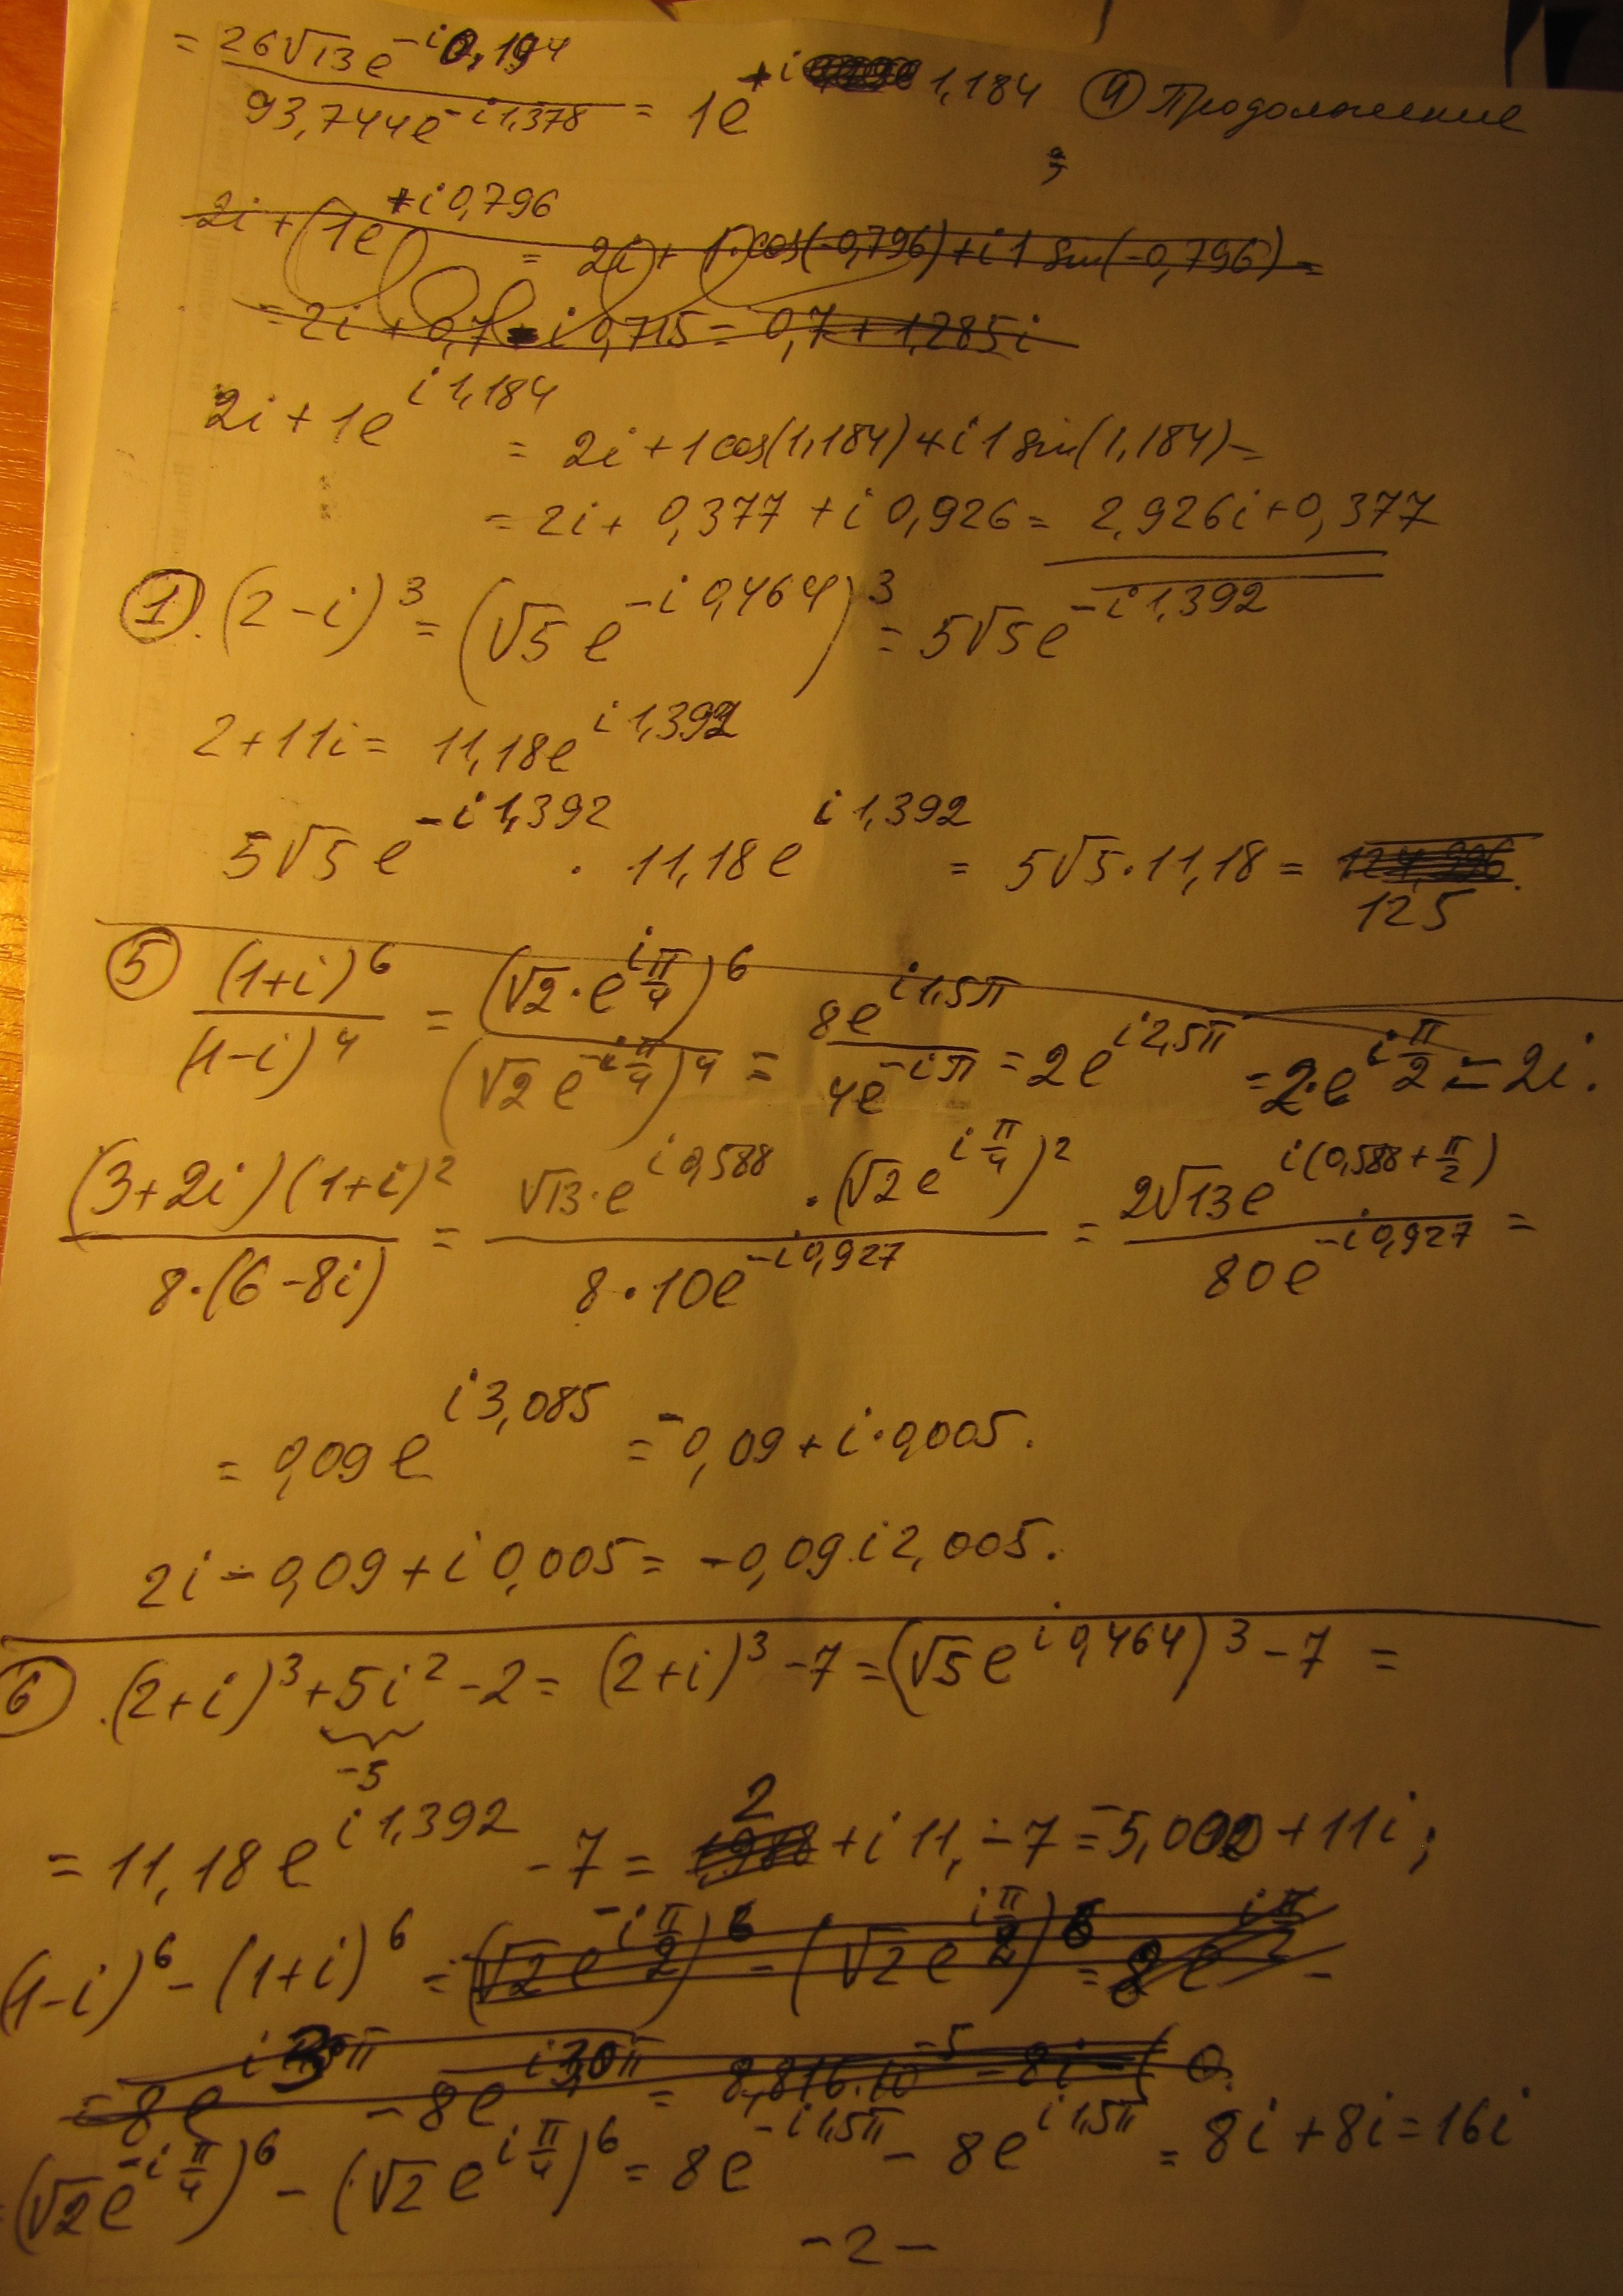 = 26√13e^{-i0,194} / 93,744e^{-i1,378} = 1e^{+i 1,184} ④ Продолжение
2i + (1e^{+i0,796} = 2i) + 1·cos(-0,796) + i1 sin(-0,796) =
= 2i + 0,7 - i 0,715 = 0,7 + 1,285i
2i + 1e^{i1,184} = 2i + 1cos(1,184) + i1 sin(1,184) =
= 2i + 0,377 + i 0,926 = 2,926i + 0,377
① (2-i)^3 = (√5 e^{-i0,464})^3 = 5√5e^{-i1,392}
2+11i = 11,18e^{i1,392}
5√5e^{-i1,392} · 11,18e^{i1,392} = 5√5·11,18 = 124,996
125
⑤ (1+i)^6 / (1-i)^4 = (√2·e^{iπ/4})^6 / (√2e^{-iπ/4})^4 = 8e^{i1,5π} / 4e^{-iπ} = 2e^{i2,5π} = 2·e^{iπ/2} = 2i.
(3+2i)(1+i)^2 / 8·(6-8i) = √13·e^{i0,588}·(√2e^{iπ/4})^2 / 8·10e^{-i0,927} = 2√13e^{i(0,588+π/2)} / 80e^{-i0,927} =
= 0,09e^{i3,085} = -0,09 + i·0,005.
2i - 0,09 + i0,005 = -0,09.i2,005.
⑥ (2+i)^3 + 5i^2 - 2 = (2+i)^3 - 7 = (√5e^{i0,464})^3 - 7 =
-5
= 11,18e^{i1,392} - 7 = 2 + i11, - 7 = -5,000 + 11i;
(1-i)^6 - (1+i)^6 = (√2e^{-iπ/2})^6 - (√2e^{iπ/2})^6 = 8e^{iπ} -
= 8e^{i3π} - 8e^{i3,0π} = 8,816·10^{-5} - 8i - (0.
= (√2e^{-iπ/4})^6 - (√2e^{iπ/4})^6 = 8e^{-i1,5π} - 8e^{i1,5π} = 8i + 8i = 16i
-2-